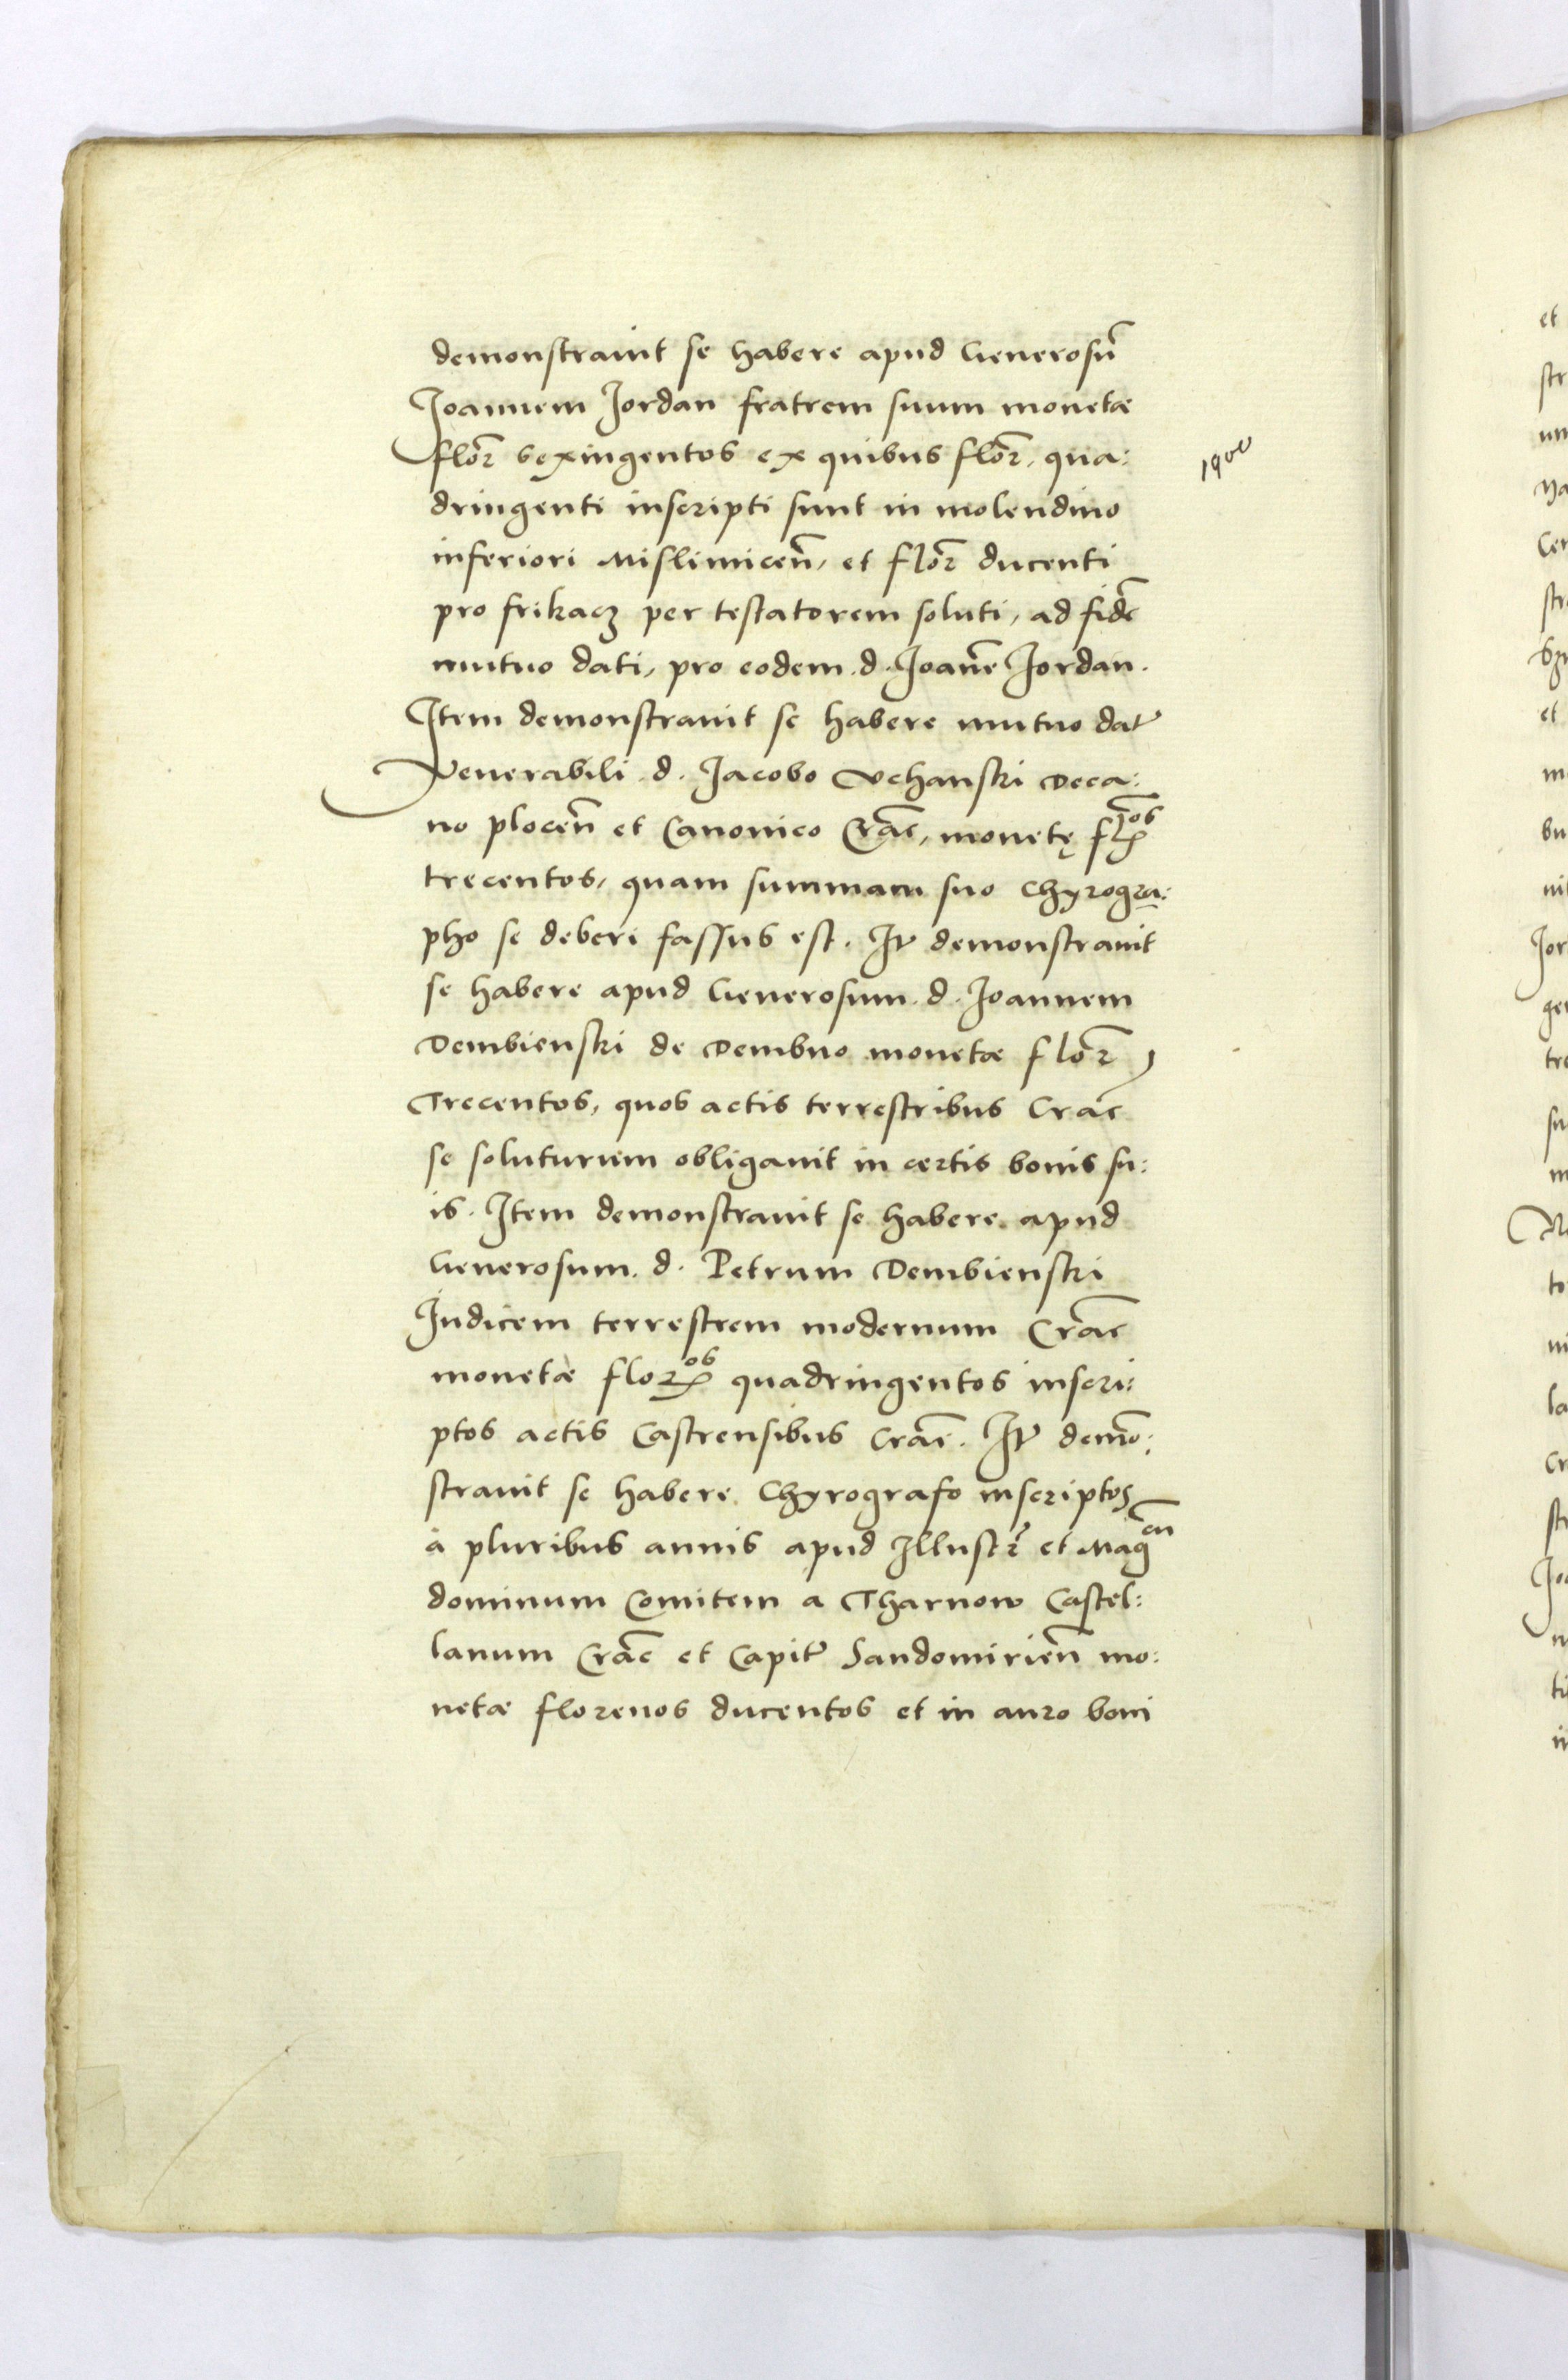 demonstrauit se habere apud Generosū
Joannem Jordan fratrem suum monetæ
flor̄ sexingentos ex quibus flor̄, qua:
dringenti inscripti sunt in molendino
inferiori Mislimiceñ, et flor̄ ducenti
pro frikacz per testatorem soluti, ad fidē
mutuo dati, pro eodem d. Joan̄e Jordan.
Item demonstrauit se habere mutuo dat̄
Venerabili d. Jacobo Vchanski Deca:
no ploceñ et Canonico Crac̄, monetę fl̄os
trecentos, quam summam suo Chyrogra:
pho se deberi fassus est. It̄ demonstrauit
se habere apud Generosum d. Joannem
Dembienski de Dembno monetæ flor̄
Trecentos, quos actis terrestribus Crac̄
se soluturum obligauit in certis bonis su:
is. Item demonstrauit se habere apud
Generosum d. Petrum Dembienski
Judicem terrestrem modernum Crac̄
monetæ flor̄os quadringentos inscri:
ptos actis Castrensibus Crac̄. It̄ demō:
strauit se habere Chyrografo inscriptos
à pluribus annis apud Illustr̄ et Mag̅cū
dominum Comitem a Tharnow Castel:
lanum Crac̄ et Capit̄ Sandomirieñ mo:
netæ florenos ducentos et in auro boni
1900